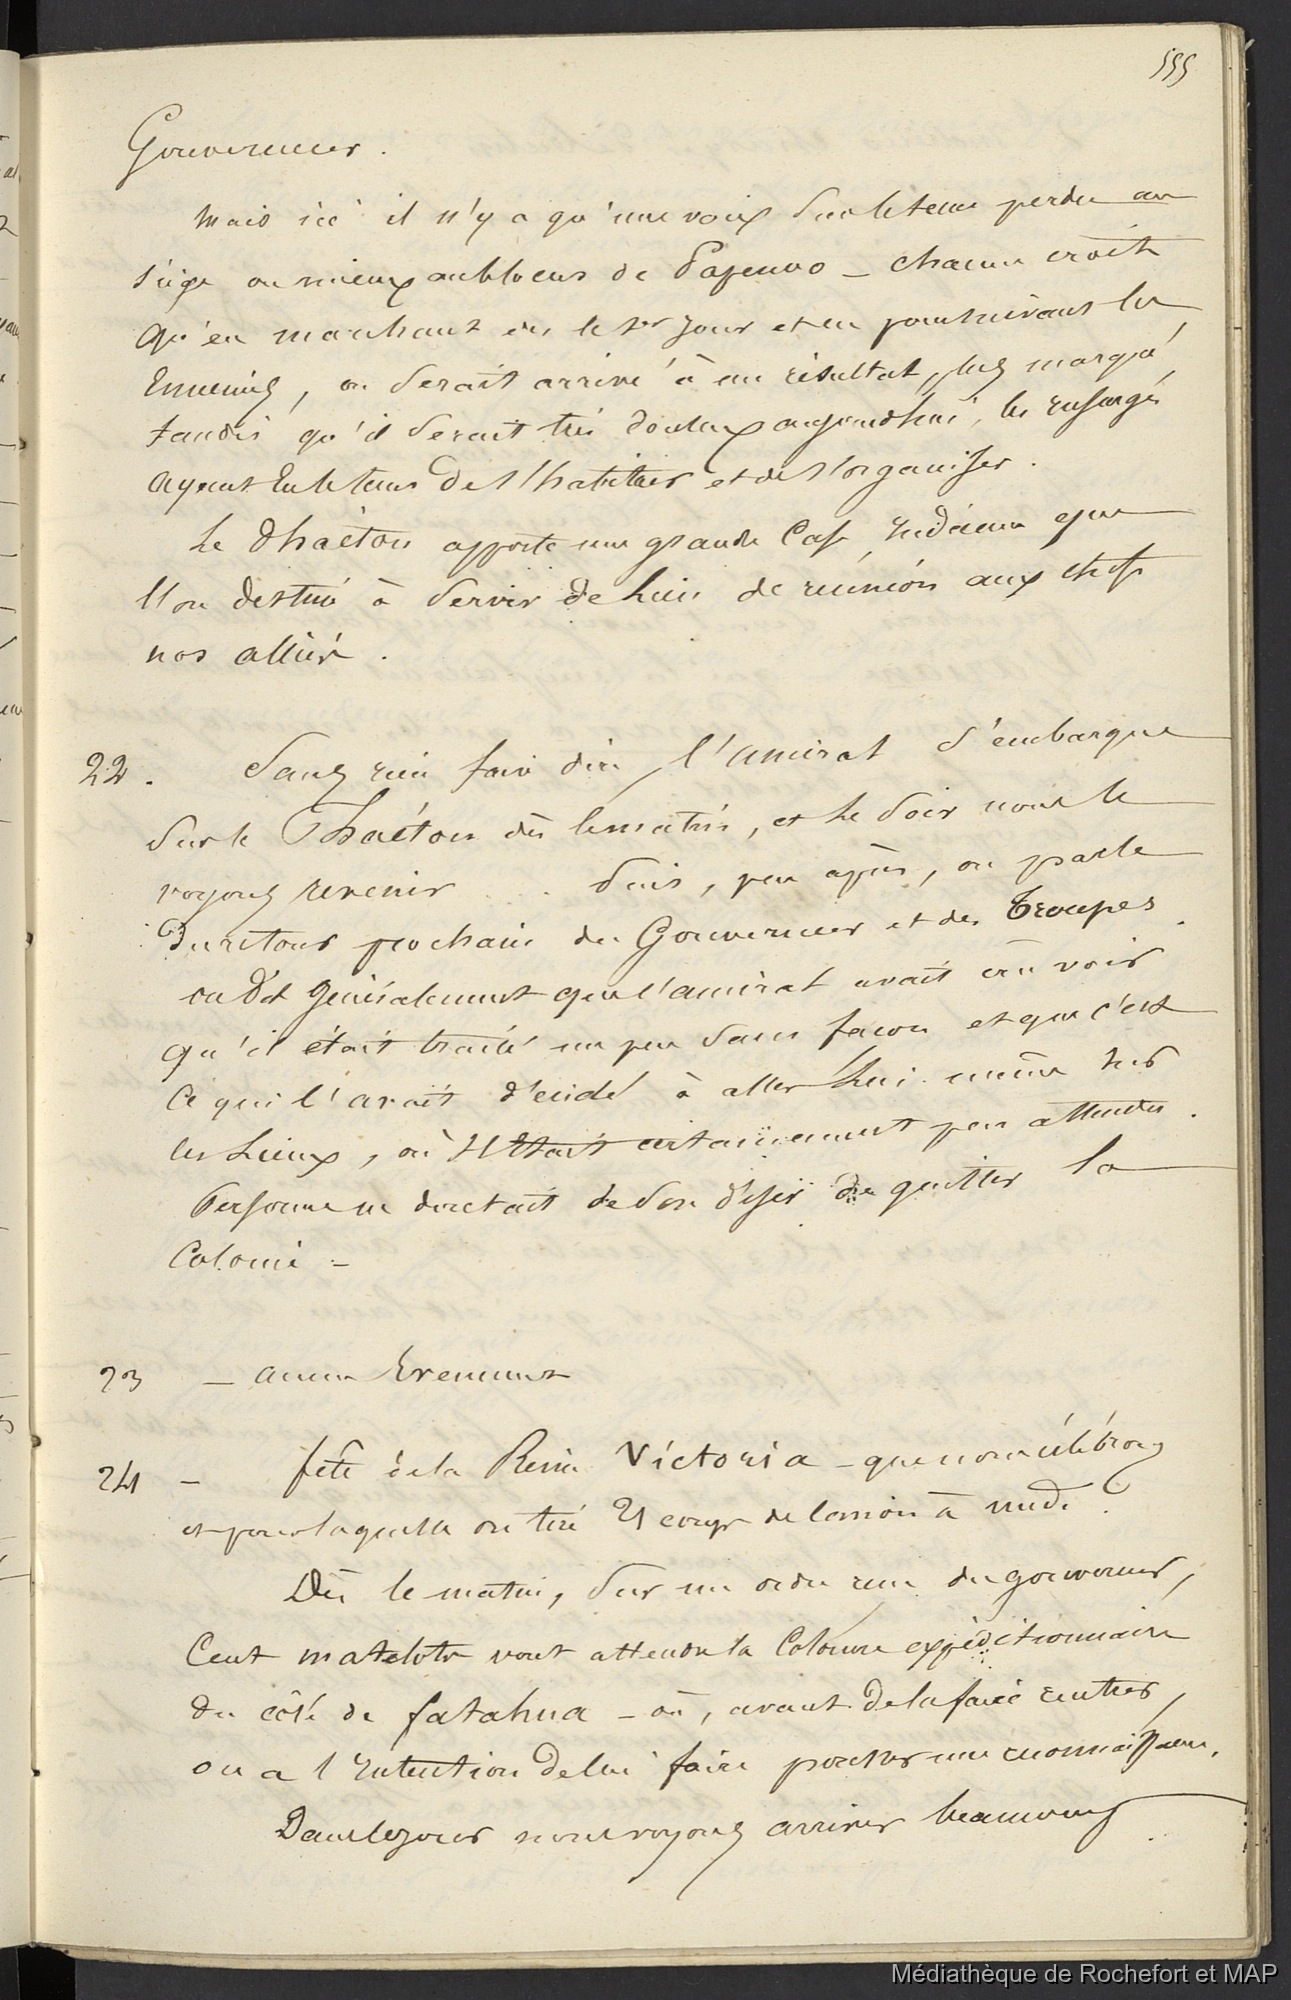 555
Gouverneur.
Mais ici il n'y a qu'une voix sur le tems perdu au
siège ou mieux au blocus de Papenoo - chacun croit
qu'en marchant dès le 1er jour et en poursuivant les
Ennemis, on serait arrivé à un résultat plus marqué,
tandis qu'il serait très douteux aujourd'hui, les insurgés
ayant Eu le tems de s'habituer et de s'organiser.
Le Phaéton apporte une grande Case Indienne que
l'on destine à servir de Lieu de réunion aux chefs
nos alliés.
22. Sans rien faire dire, l'amiral s'embarque
sur le Phaéton dès le matin, et le soir nous le
voyons revenir . . . Puis, peu après, on parle
Du retour prochain du Gouverneur et des Troupes.
on Dit généralement que l'amiral avait crû voir
qu'il était traité un peu sans façon et que c'est
Ce qui l'avait décidé à aller Lui-même sur
les Lieux, où Il était certainement peu attendu.
Personne ne doutait de Son désir de quitter la
Colonie -
23 - aucun Evenement
24 - fête de la Reine Victoria - que nous célébrons
et pour laquelle on tire 21 coups de canon à midi.
Dès le matin, sur un ordre venu du gouverneur,
Cent matelots vont attendre la Colonne expéditionnaire
du côté de fatahua - où, avant de la faire rentrer,
on a l'Intention de lui faire pousser une reconnaissance.
Dans le jour nous voyons arriver beaucoup
Médiathèque de Rochefort et MAP